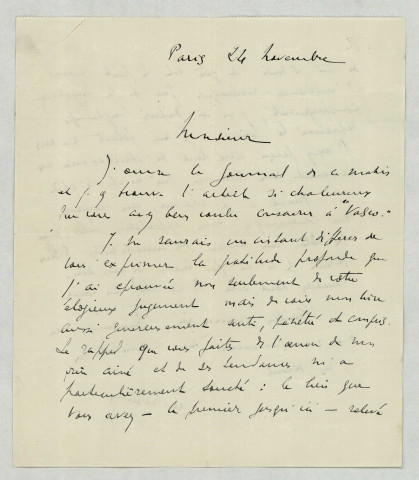 Paris 24 novembre
Monsieur
J'ouvre le Journal de ce matin
et j'y trouve l'article si chaleureux
que vous avez bien voulu consacrer à "Vasco."
Je ne saurais un instant différer de
vous exprimer la gratitude profonde que
j'ai éprouvée non seulement de votre
élogieux jugement mais de voir mon livre
aussi généreusement senti, pénétré et compris.
Le rappel que vous faites de l'œuvre de mon
frère aîné et de ses tendances m'a
particulièrement touché : le lien que
vous avez — le premier jusqu'ici — relevé